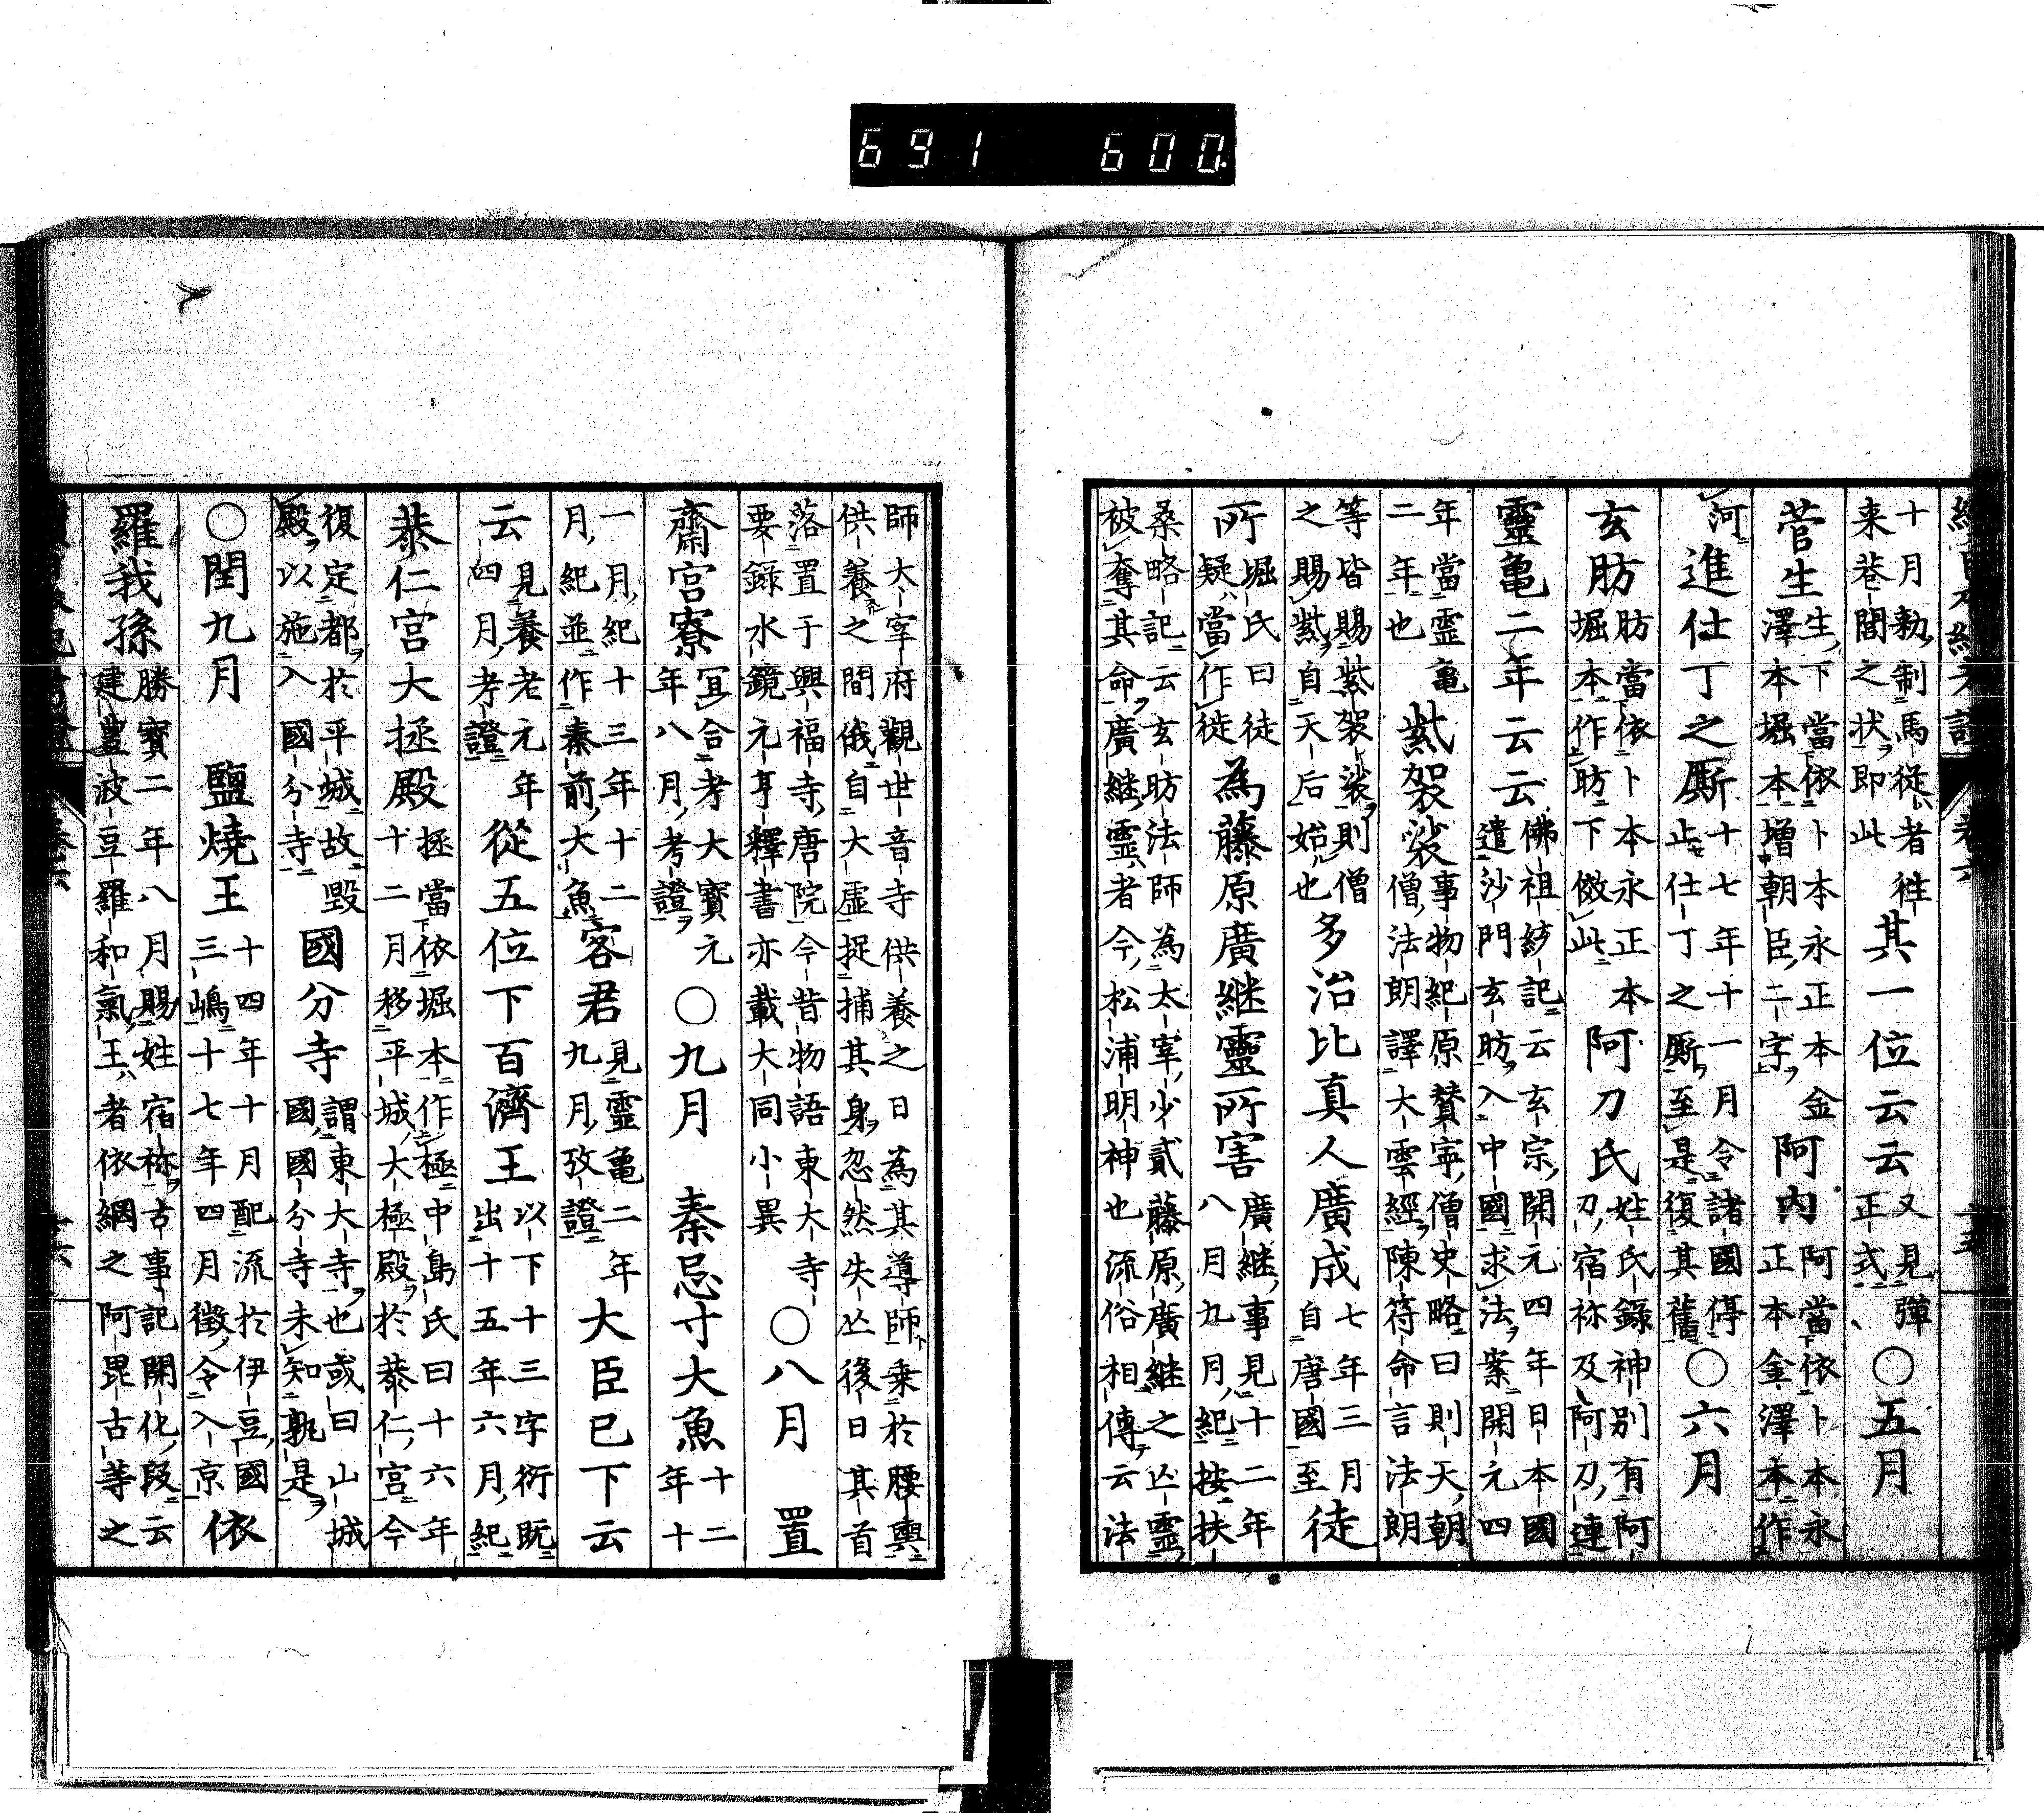 691 600.
十月勅制馬従者徃
来巷閭之状即此
其一位云云
又見彈
正式
〇五月
菅生
生下當依卜本永正本金
澤本堀本増朝臣二字
阿内
阿當依卜本永
正本金澤本作
河
進仕丁之厮
十七年十一月令諸國停
止仕丁之厮至是復其舊
〇六月
玄肪
肪當依卜本永正本
堀本作昉下倣此
阿刀氏
姓氏録神別有阿
刀宿祢及阿刀連
靈亀二年云云
佛祖紡記云玄宗開元四年日本國
遣沙門玄昉入中國求法案開元四
年當霊亀
二年也
紫袈裟
事物紀原賛寧僧史略曰則天朝
僧法朗譯大雲經陳符命言法朗
等皆賜紫袈裟則僧
之賜紫自天后始也
多治比真人廣成
七年三月
自唐國至
徒
所
堀氏曰徒
疑當作徙
為藤原廣継靈所害
廣継事見十二年
八月九月紀按扶
桑略記云玄昉法師為太宰少貳藤原廣継之亾霊
被奪其命廣継霊者今松浦明神也流俗相傳云法
師大宰府觀世音寺供養之日為其導師乗於腰輿
供養之間俄自大虚捉捕其身忽然失亾後日其首
落置于興福寺唐院今昔物語東大寺
要録水鏡元亨釋書亦載大同小異
〇八月
置
齋宮寮
冝合考大寳元
年八月考證
〇九月
秦忌寸大魚
十二
年十
一月紀十三年十二
月紀並作秦前大魚
客君
見霊亀二年
九月攷證
大臣已下云
云
見養老元年
四月考證
從五位下百濟王
以下十三字衍既
出十五年六月紀
恭仁宮大拯殿
拯當依堀本作極中島氏曰十六年
十二月移平城大極殿於恭仁宮今
復定都於平城故毀
殿以施入國分寺
國分寺
謂東大寺也或曰山城
國國分寺未知孰是
〇閏九月
鹽焼王
十四年十月配流於伊豆國
三嶋十七年四月徴令入京
依
羅我孫
勝寳二年八月賜姓宿祢古事記開化段云
建豊波豆羅和氣王者依網之阿毘古等之